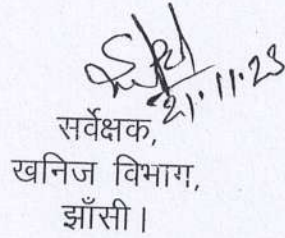 21.11.23
सर्वेक्षक,
खनिज विभाग,
झाँसी।